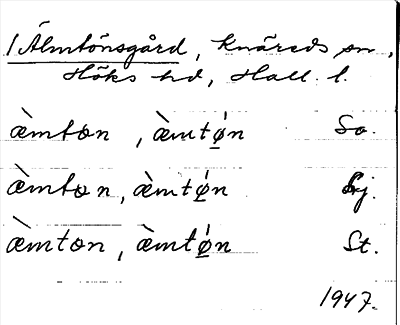 1 Älmtönsgård, Knäreds sn,
Höks hd, Hall. l.
æ̀mtɷn, æ̀mtǿ̲n So.
æ̀mtɷn, æ̀mtǿ̲n Sj.
æ̀mtɷn, æ̀mtǿ̲n St.
1947.